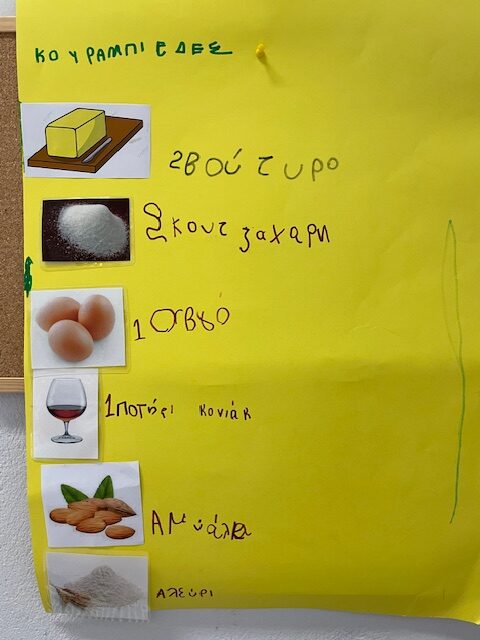 ΚΟΥΡΑΜΠΙΕΔΕΣ
2 Βούτυρο
2 κουτ ζαχαρη
1 Οαβγό
1 ποτήρι κονιάκ
Αλεύρι